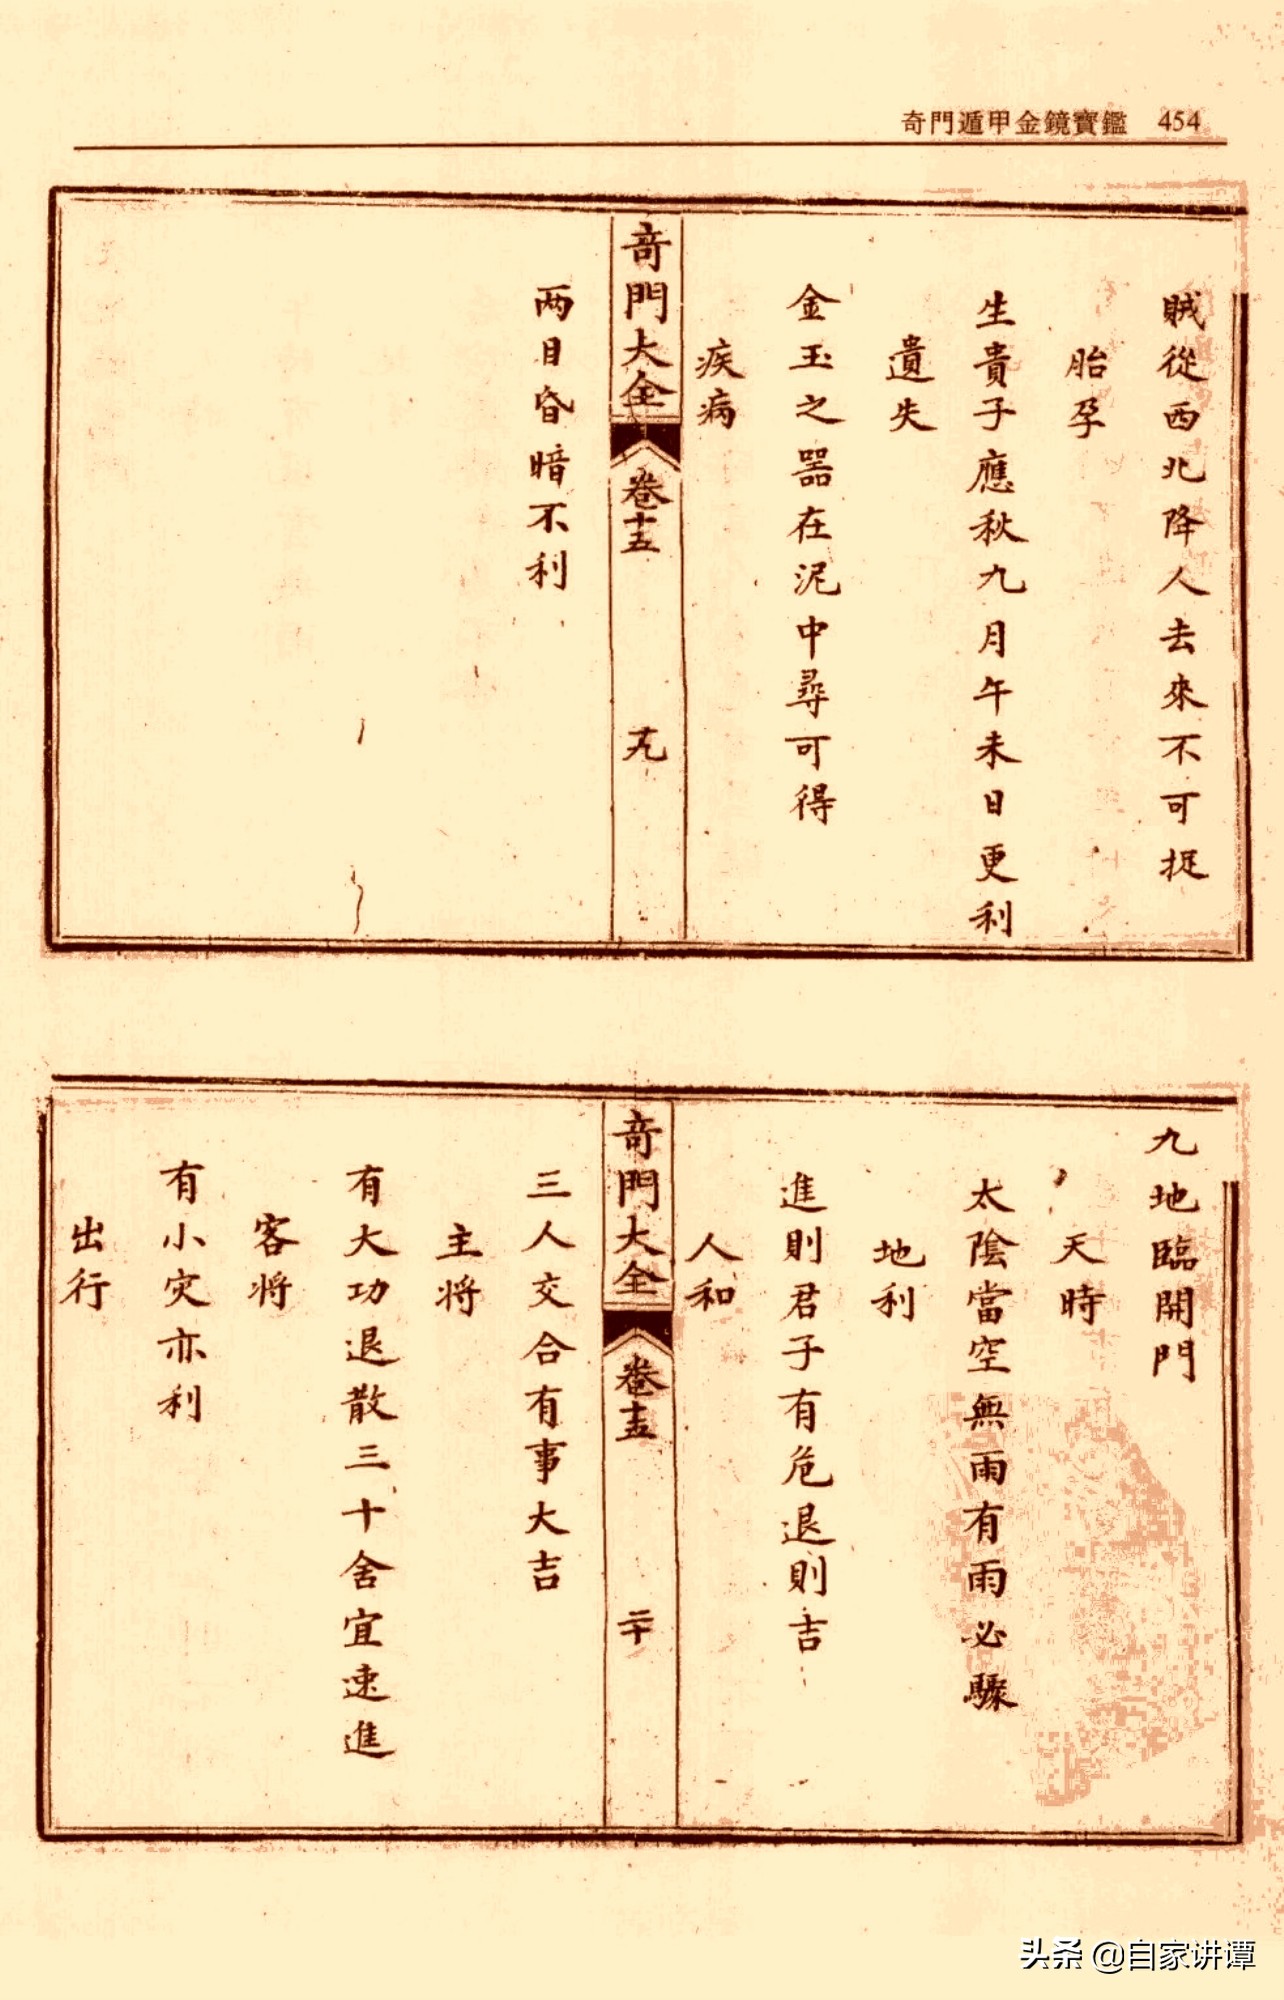 奇門遁甲金鏡寶鑑 454
賊從西北降人去來不可捉
胎孕
生貴子應秋九月午未日更利
遺失
金玉之器在泥中尋可得
疾病
奇門大全 卷十五 十九
两目昏暗不利
九地臨開門
天時
太陰當空無雨有雨必驟
地利
進則君子有危退則吉
人和
奇門大全 卷十五 二十
三人交合有事大吉
主将
有大功退散三十舍宜速進
客将
有小灾亦利
出行
头条 @自家讲谭